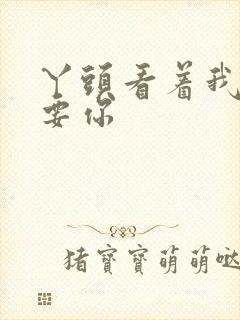 丫頭看着我
要你
猪寶寶萌萌哒